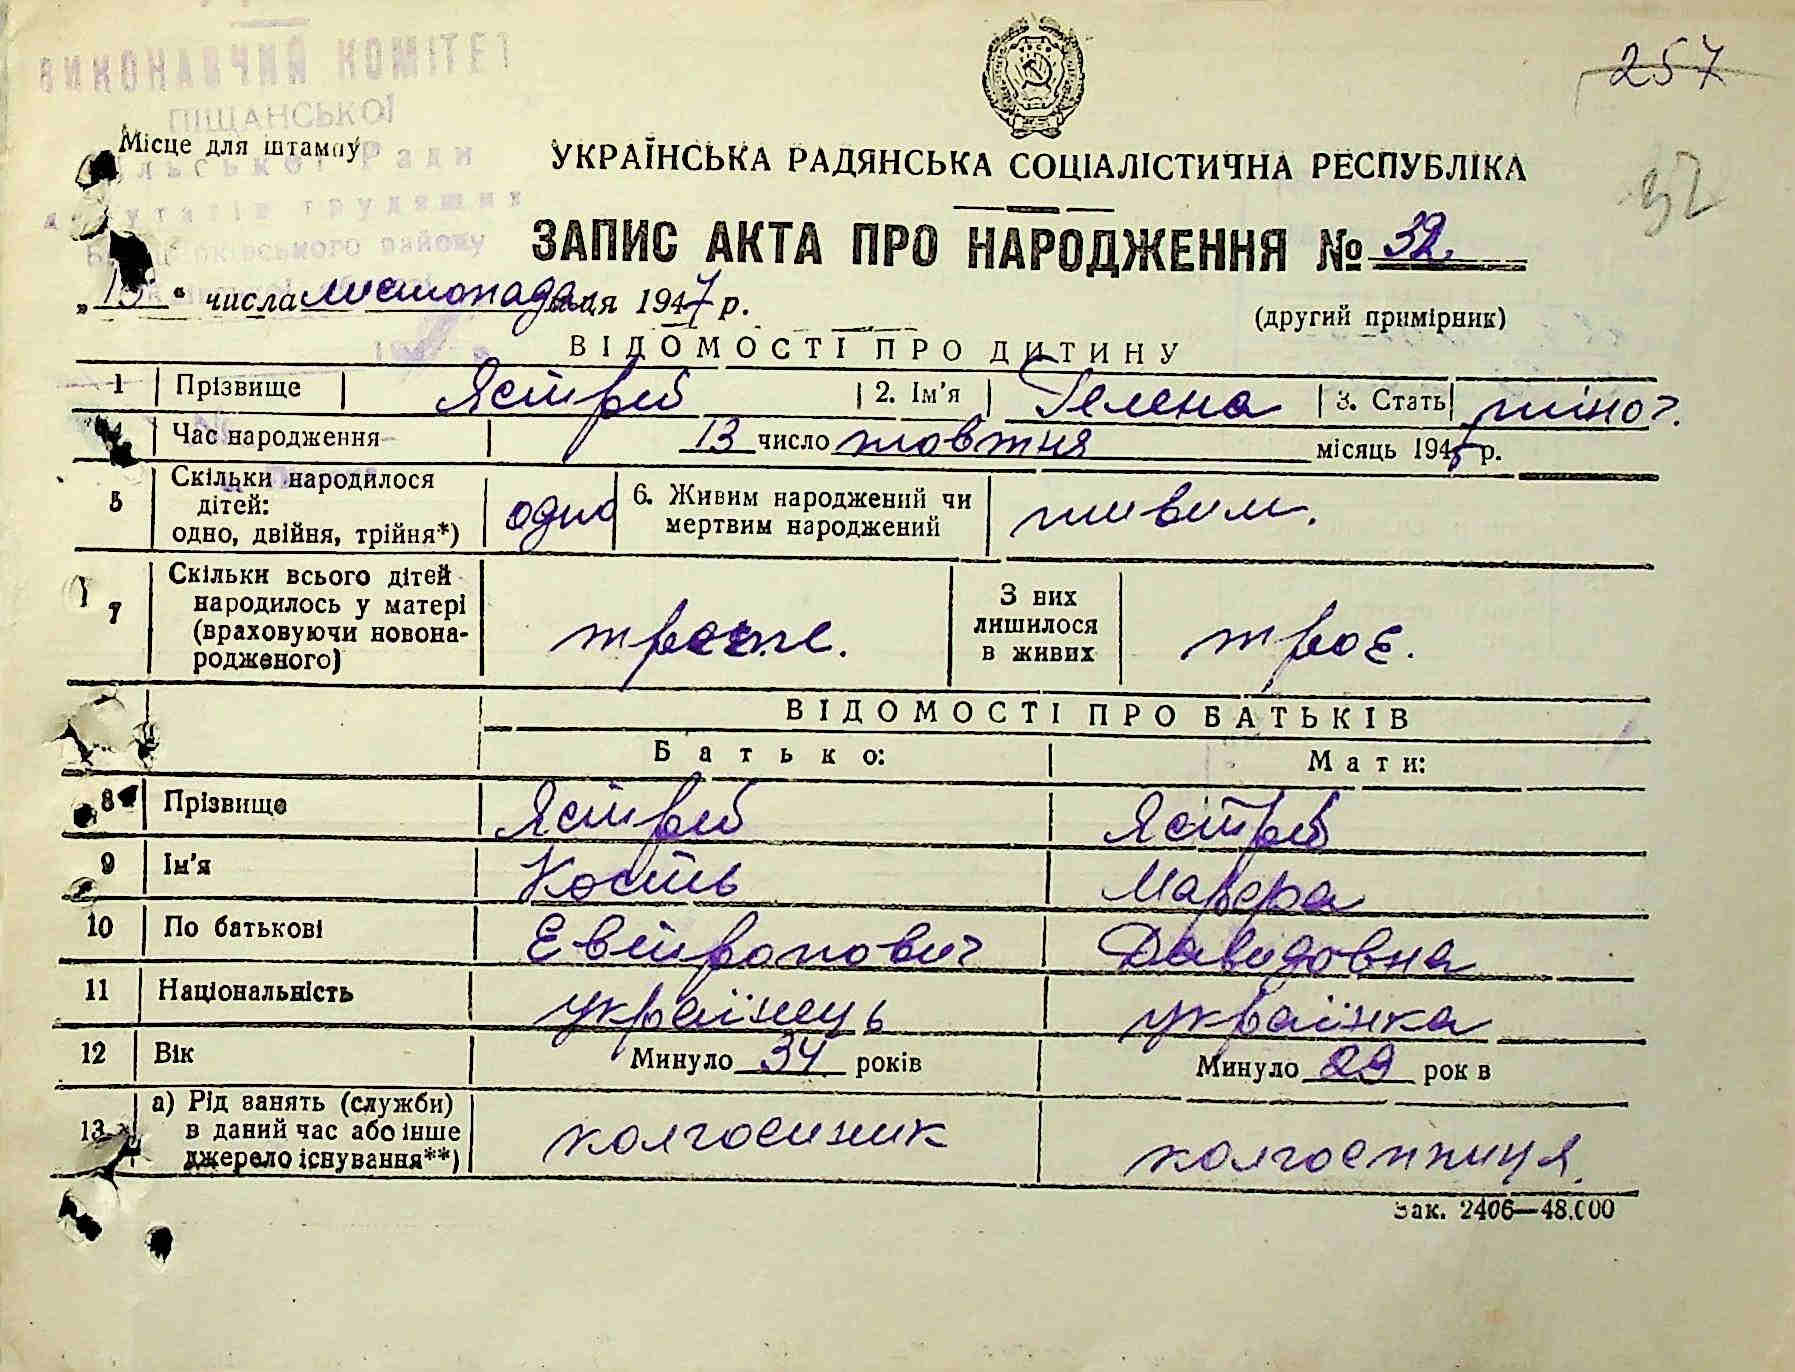 257
ВИКОНАВЧИЙ КОМІТЕТ
ПІЩАНСЬКОЇ
Місце для штампу
Ради
трудящих
району
УКРАЇНСЬКА РАДЯНСЬКА СОЦІАЛІСТИЧНА РЕСПУБЛІКА
32
ЗАПИС АКТА ПРО НАРОДЖЕННЯ № 32
„15“ числа листопада місяця 1947 р.
(другий примірник)
ВІДОМОСТІ ПРО ДИТИНУ
1 Прізвище Ястреб 2. Ім'я Гелена 3. Стать жіноч.
4 Час народження 13 число жовтня місяць 1947 р.
5 Скільки народилося дітей: одно, двійня, трійня*) одно 6. Живим народжений чи мертвим народжений живим.
7 Скільки всього дітей народилось у матері (враховуючи новонародженого) З них лишилося в живих троє.
ВІДОМОСТІ ПРО БАТЬКІВ
Батько: Мати:
8 Прізвище Ястреб Ястреб
9 Ім'я Кость
10 По батькові Давидовна
11 Національність українець українка
12 Вік Минуло 34 років Минуло 29 рок в
13 а) Рід занять (служби) в даний час або інше джерело існування**) колгоспник колгоспниця.
Зак. 2406—48.000